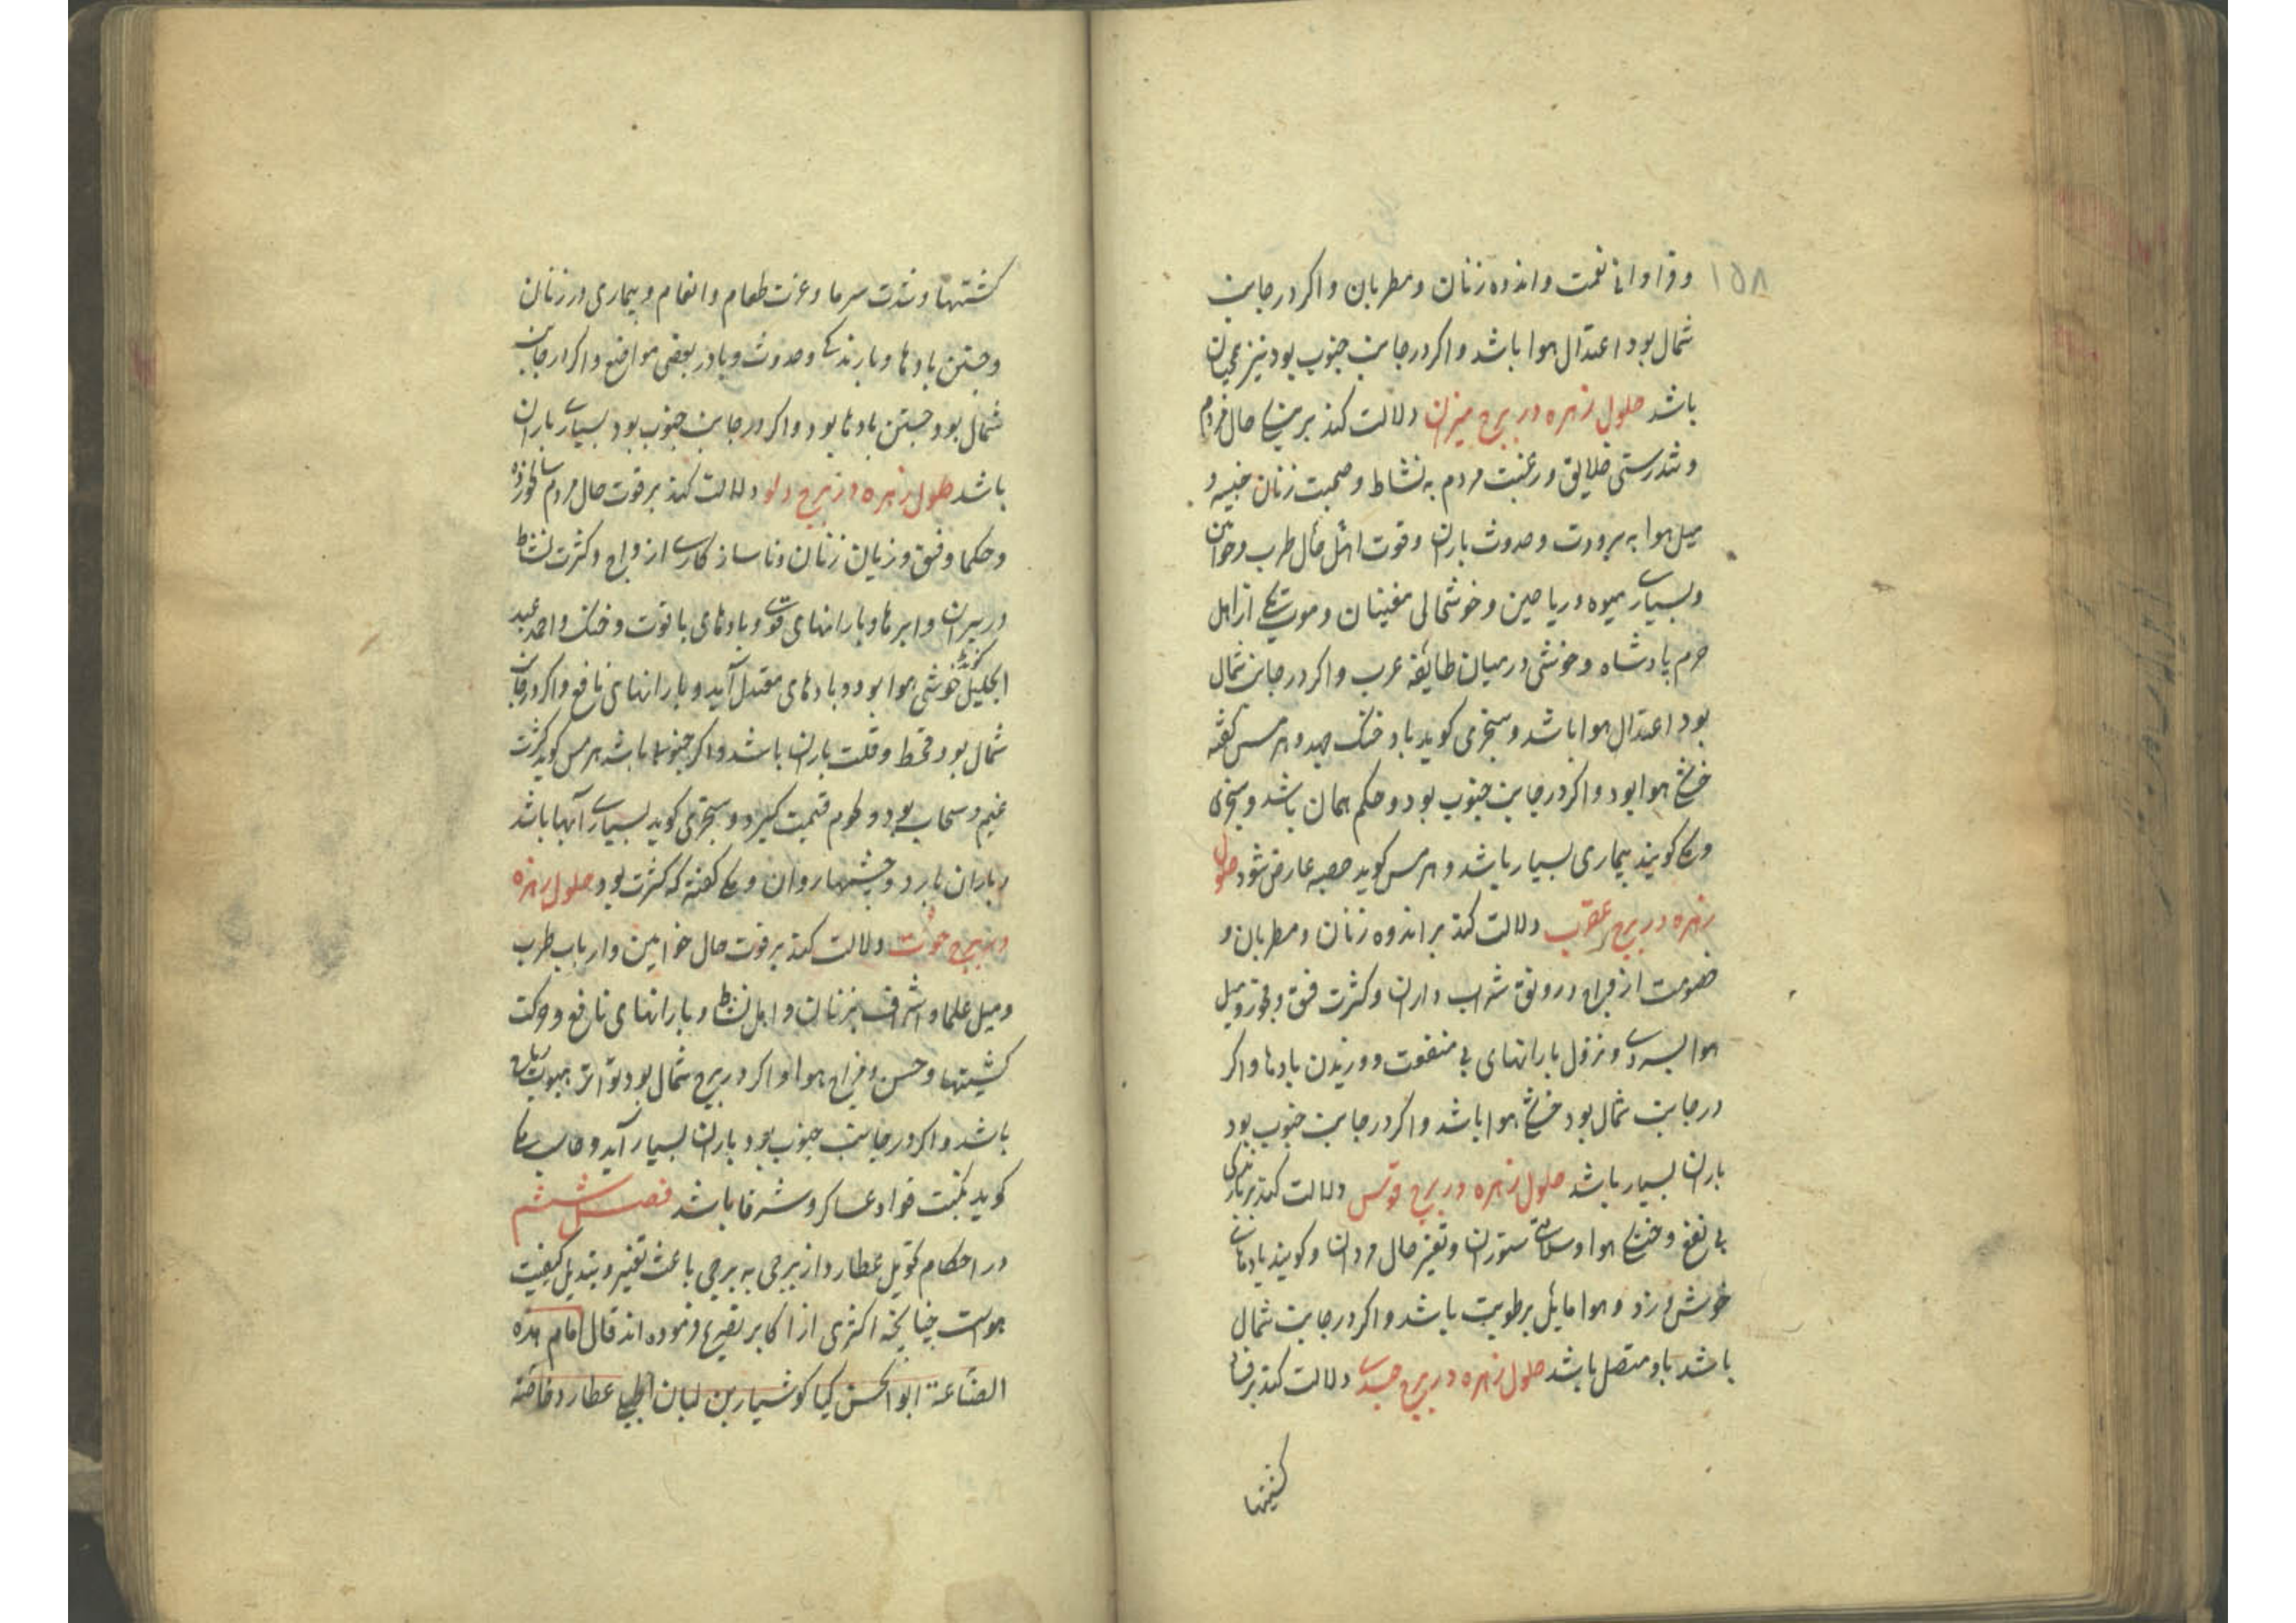 ۱۵۸
و فراوانی نعمت و اندوه زنان و مطربان و اکر در جانب
شمال بود اعتدال هوا باشد و اکر در جانب جنوب بود نیز همچنان
باشد حلول زهره در برج میزان دلالت کند بر نیکی حال مردم
و تندرستی خلایق و رغبت مردم به نشاط و صحبت زنان و
میل هوا به برودت و حدوث باران و قوت حال اهل طرب و خواتین
و بسیاری میوه و ریاحین و خوشحالی مغنیان و موت یکی از اهل
حرم پادشاه و خوشی در میان طایفه عرب و اکر در جانب شمال
بود اعتدال هوا باشد و سنجری کوید باد خنک جهد و هرمس کفته
خشکی هوا بود و اکر در جانب جنوب بود حکم همان باشد و سنجری
و کویند بیماری بسیار باشد و هرمس کوید حصبه عارض شود حلول
زهره در برج عقرب دلالت کند بر اندوه زنان و مطربان و
خصومت ازواج و رونق شراب داران و کثرت فسق و فجور و میل
هوا بسردی و نزول بارانهای بی منفعت و وزیدن بادها و اکر
در جانب شمال بود خشکی هوا باشد و اکر در جانب جنوب بود
باران بسیار باشد حلول زهره در برج قوس دلالت کند بر بارندکی
بی نفع و خشکی هوا و سلامتی ستوران و تغیر حال مردان و کویند بادهای
خوش وزد و هوا مایل برطوبت باشد و اکر در جانب شمال
باشد باد متصل باشد حلول زهره در برج جدی دلالت کند بر فساد
کشتیها
کشتیها و شدت سرما و عزت طعام و انعام و بیماری در زنان
و جستن بادها و بارندکی و حدوث وبا در بعضی مواضع و اکر در جانب
شمال بود جستن بادها بود و اکر در جانب جنوب بود بسیاری باران
باشد حلول زهره در برج دلو دلالت کند بر قوت حال مردم سالخورده
و حکما و فسق و زیان زنان و ناسازکاری ازواج و کثرت نشاط
در پیران و ابرها و بارانهای قوی و بادهای با قوت و خنک و احمد عبد
الجلیل خوشی هوا بود و بادهای معتدل آید و بارانهای نافع و اکر در جانب
شمال بود قحط و قلت باران باشد و اکر جنوب باشد هرمس کوید کثرت
غیم و سحاب بود و لحوم قیمت کیرد و سنجری کوید بسیاری آبها باشد
و باران بارد و چشمها روان و کفته که کثرت بود حلول زهره
در برج حوت دلالت کند بر قوت حال خواتین و ارباب طرب
و میل علما و اشراف بزنان و اهل نشاط و بارانهای نافع و حرکت
کشتیها و حسن مزاج هوا و اکر در برج شمال بود تواتر هبوب ریاح
باشد و اکر در جانب جنوب بود باران بسیار آید و
کوید نکبت قواد عساکر و شرفا باشد فصل ششم
در احکام تحویل عطارد از برجی به برجی باعث تغییر و تبدیل کیفیت
هواست چنانچه اکثری از اکابر تصریح فرموده اند قال امام هذه
الصناعة ابو الحسن کیا کوشیار بن لبان الجیلی عطارد خاصة